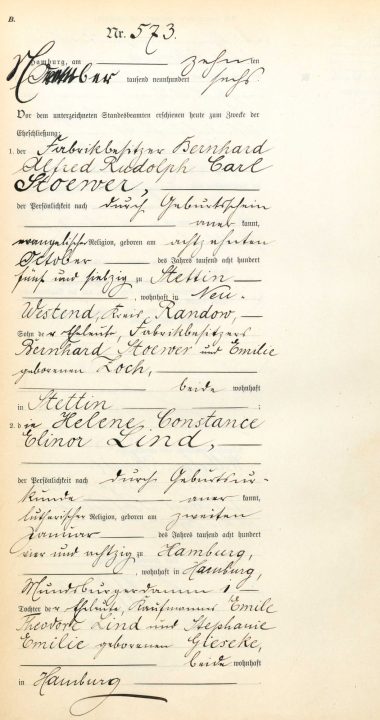 B.
Nr. 573.
Hamburg, am zehnten
November tausend neunhundert sechs.
Vor dem unterzeichneten Standesbeamten erschienen heute zum Zwecke der
Eheschließung:
1. der Fabrikbesitzer Bernhard
Alfred Rudolph Carl
Stoewer,
der Persönlichkeit nach durch Geburtsschein
anerkannt,
evangelischer Religion, geboren am achtzehnten
Oktober des Jahres tausend acht hundert
fünf und siebzig zu Stettin
, wohnhaft in Neu-
Westend, Kreis Randow,
Sohn der Eheleute, Fabrikbesitzers
Bernhard Stoewer und Emilie
geborenen Zoch,
beide wohnhaft
in Stettin ;
2. die Helene Constance
Elinor Lind,
der Persönlichkeit nach durch Geburtsur-
kunde anerkannt,
lutherischer Religion, geboren am zweiten
Januar des Jahres tausend acht hundert
vier und achtzig zu Hamburg,
, wohnhaft in Hamburg,
Mundsburgerdamm 1
Tochter der Eheleute, Kaufmanns Emile
Theodore Lind und Stephanie
Emilie geborenen Gieseke,
beide wohnhaft
in Hamburg